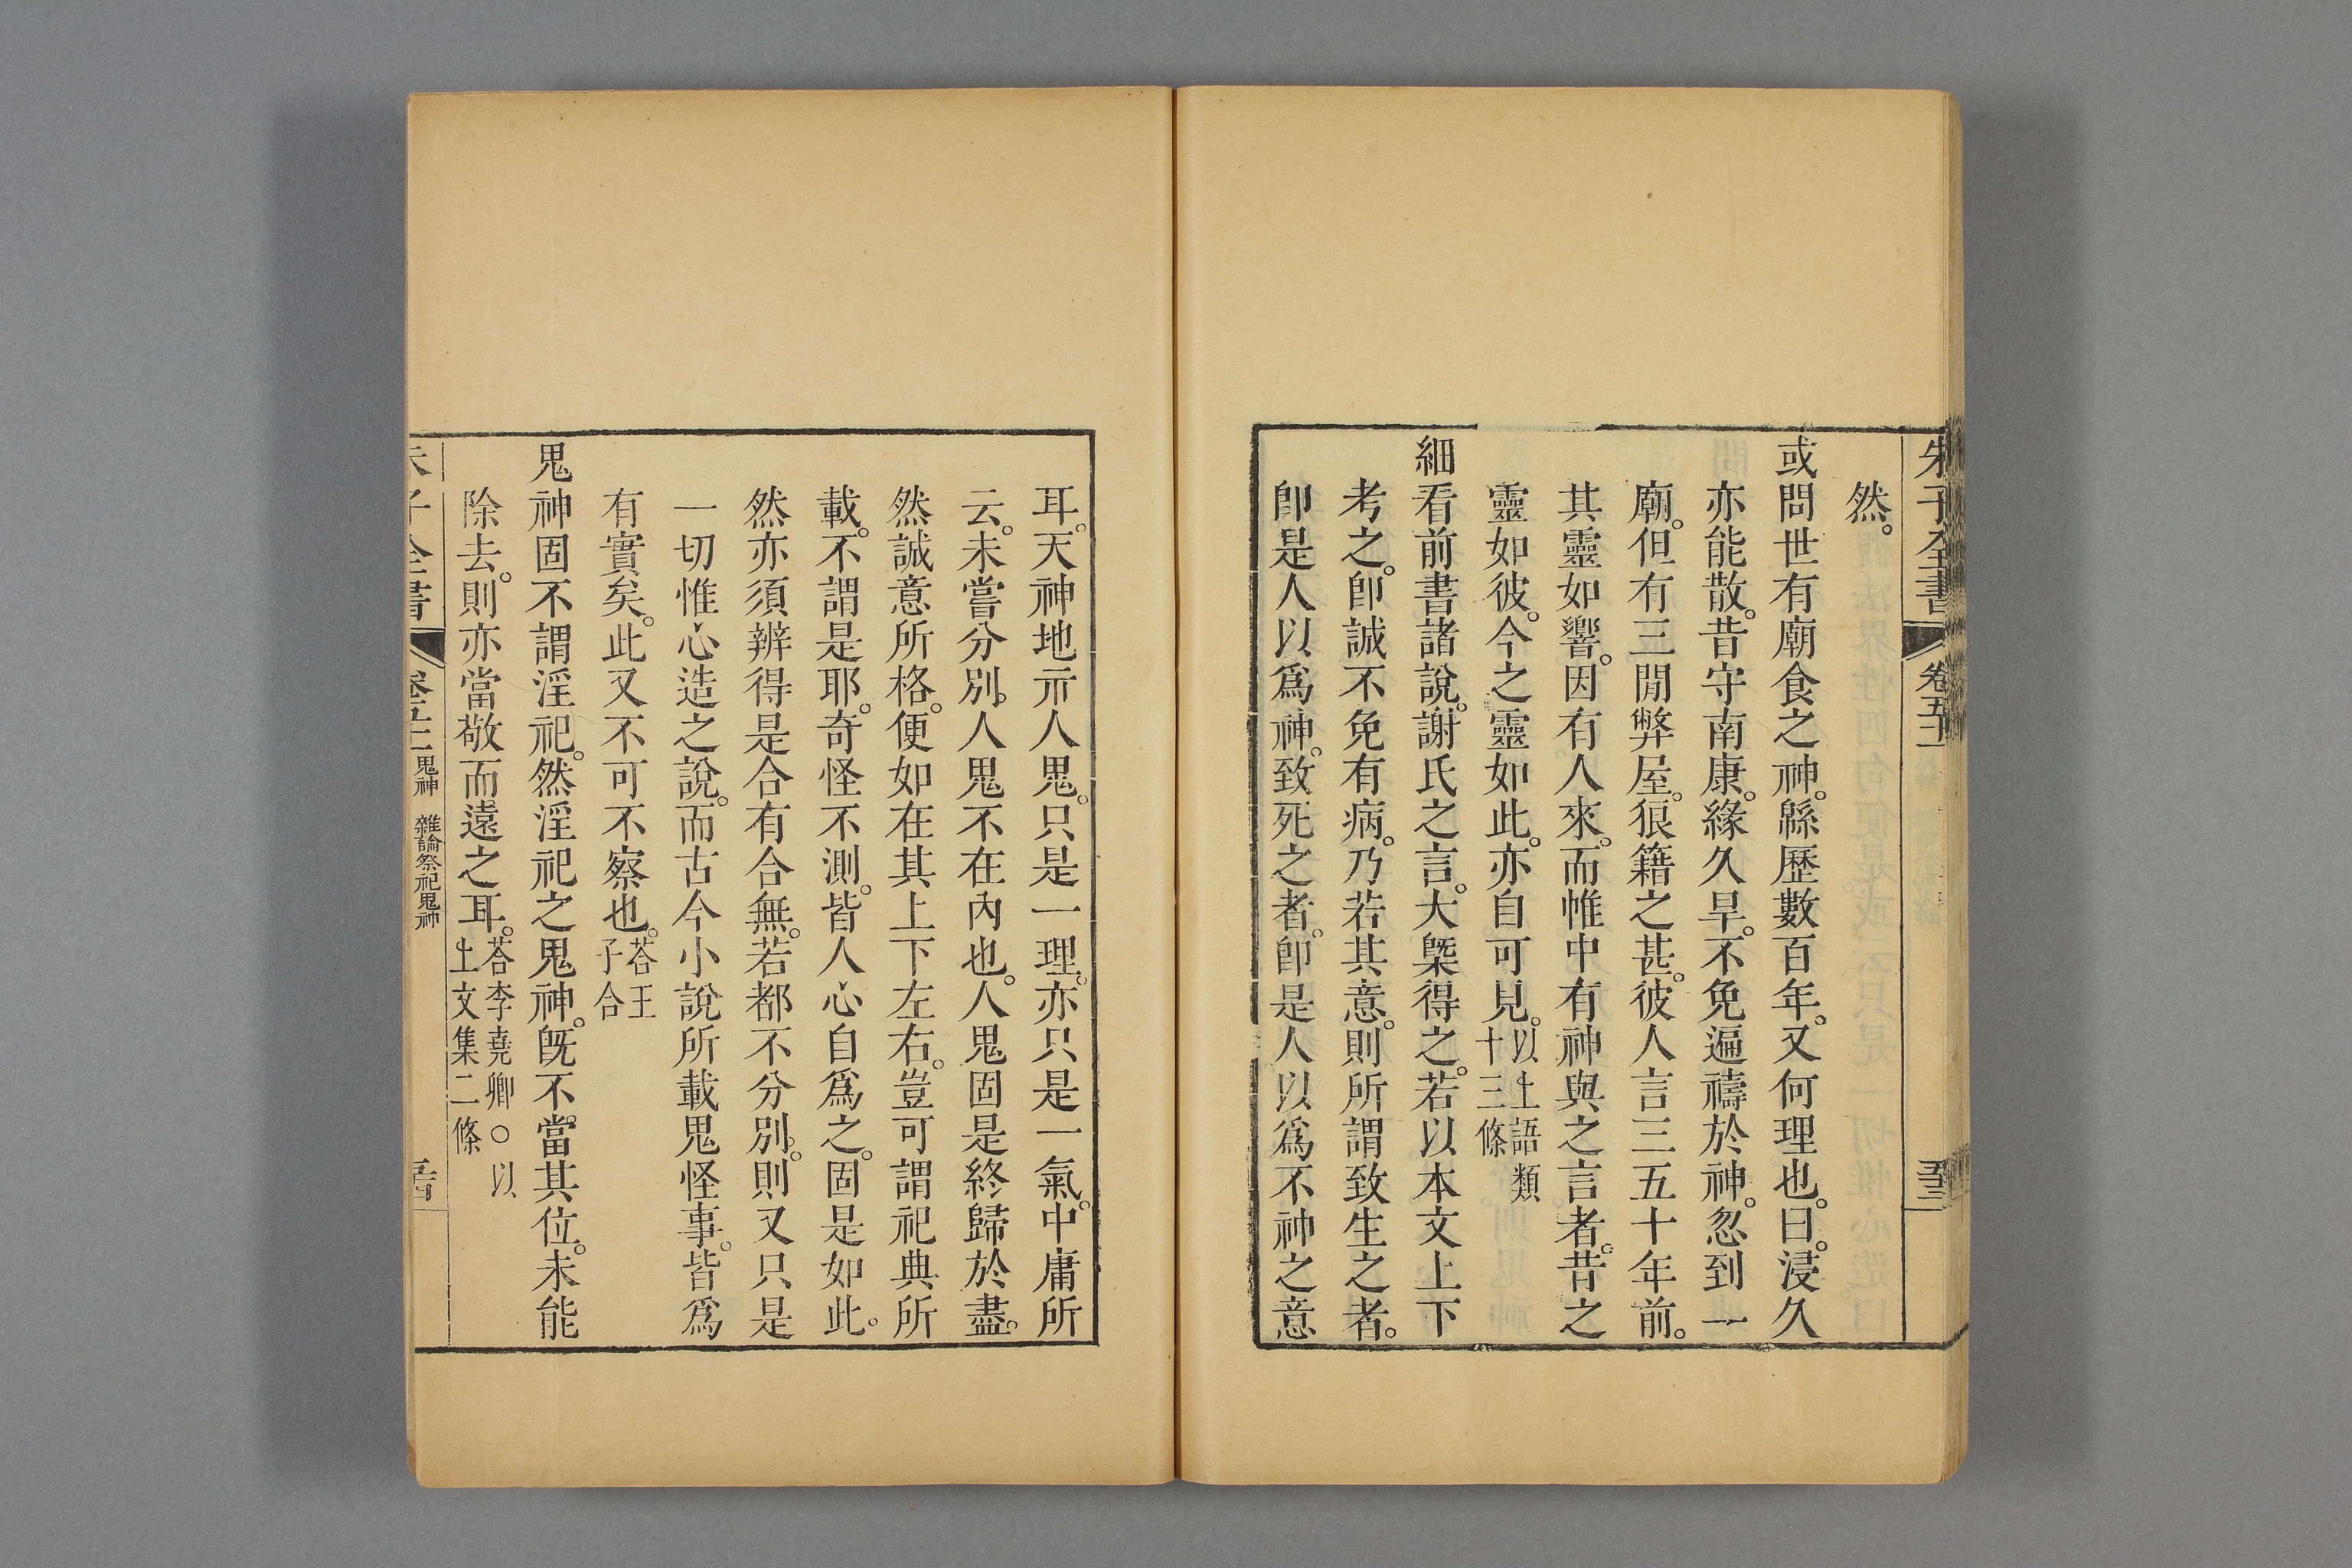 朱子全書 卷五十一 五十三
然。
或問世有廟食之神。緜歷數百年。又何理也。曰。浸久
亦能散。昔守南康。緣久旱。不免遍禱於神。忽到一
廟。但有三閒弊屋。狼籍之甚。彼人言三五十年前。
其靈如響。因有人來。而帷中有神與之言者。昔之
靈如彼。今之靈如此。亦自可見。以上語類十三條
細看前書諸說。謝氏之言。大槩得之。若以本文上下
考之。卽誠不免有病。乃若其意。則所謂致生之者。
卽是人以爲神。致死之者。卽是人以爲不神之意
耳。天神地示人鬼。只是一理。亦只是一氣。中庸所
云。未嘗分別。人鬼不在內也。人鬼固是終歸於盡。
然誠意所格。便如在其上下左右。豈可謂祀典所
載。不謂是耶。奇怪不測。皆人心自爲之。固是如此。
然亦須辨得是合有合無。若都不分別。則又只是
一切惟心造之說。而古今小說所載鬼怪事。皆爲
有實矣。此又不可不察也。荅王子合
鬼神固不謂淫祀。然淫祀之鬼神。旣不當其位。未能
除去。則亦當敬而遠之耳。荅李堯卿○以上文集二條
朱子全書 鬼神 雜論祭祀鬼神